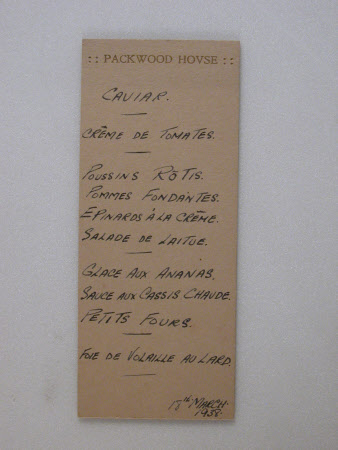 :: PACKWOOD HOVSE ::
CAVIAR.
CRÊME DE TOMATES.
POUSSINS RÔTIS.
POMMES FONDANTES.
EPINARDS À LA CRÊME.
SALADE DE LAITUE.
GLACE AUX ANANAS.
SAUCE AUX CASSIS CHAUDE.
PETITS FOURS.
FOIE DE VOLAILLE AU LARD.
MARCH
1938.